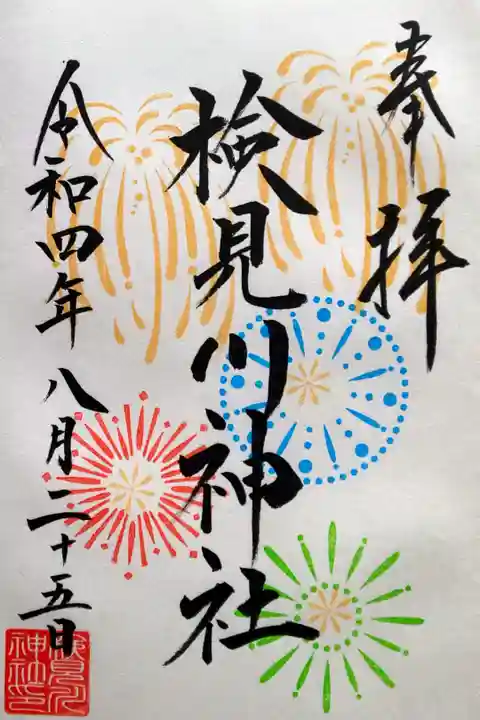 奉拝
検見川神社
令和四年八月二十五日
検見川神社之印